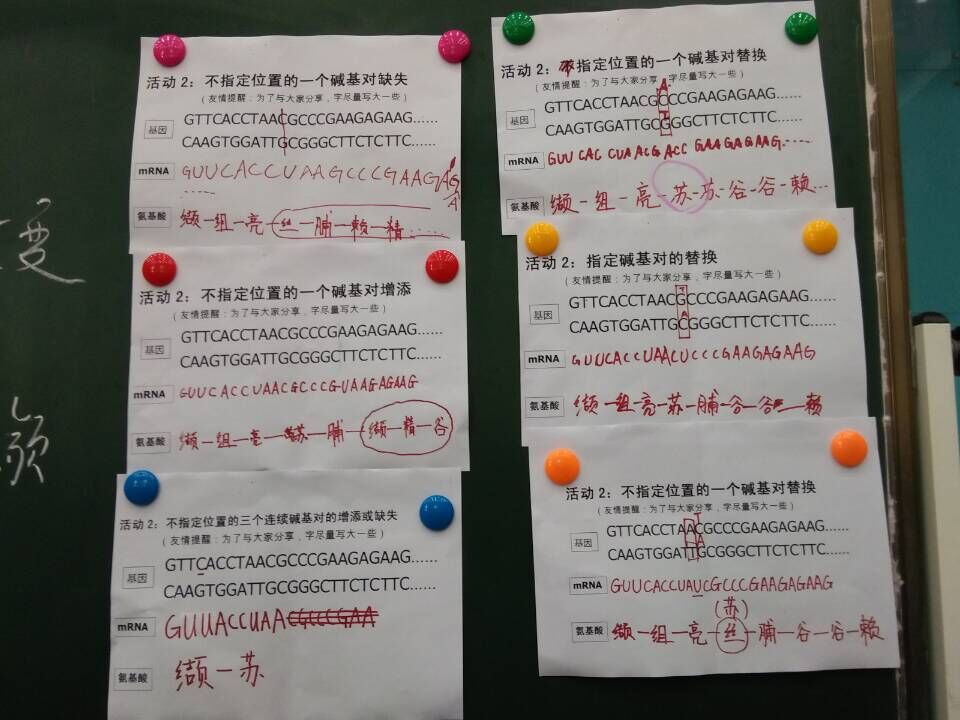 变
颁
活动2：不指定位置的一个碱基对缺失
（友情提醒：为了与大家分享，字尽量写大一些）
基因
GTTCACCTAACGCCCGAAGAGAAG......
CAAGTGGATTGCGGGCTTCTCTTC......
mRNA
GUUCACCUAAGCCCGAAGAG
A
......
氨基酸
缬一组一亮一丝一脯一赖一精......
活动2：不指定位置的一个碱基对增添
（友情提醒：为了与大家分享，字尽量写大一些）
基因
GTTCACCTAACGCCCGAAGAGAAG......
CAAGTGGATTGCGGGCTTCTCTTC......
mRNA
GUUCACCUAACGCCCGUAAGAGAAG
氨基酸
缬一组一亮一苏一脯一缬一精一谷
活动2：不指定位置的三个连续碱基对的增添或缺失
（友情提醒：为了与大家分享，字尽量写大一些）
基因
GTTCACCTAACGCCCGAAGAGAAG......
CAAGTGGATTGCGGGCTTCTCTTC......
mRNA
GUUACCUAACGCCCGAA
氨基酸
缬一苏
活动2：不指定位置的一个碱基对替换
（友情提醒：为了与大家分享，字尽量写大一些）
A
基因
GTTCACCTAACGCCCGAAGAGAAG......
CAAGTGGATTGCGGGCTTCTCTTC......
T
mRNA
GUUCACCUAACGACCGAAGAGAAG......
氨基酸
缬一组一亮一苏一苏一谷一谷一赖...
活动2：指定碱基对的替换
（友情提醒：为了与大家分享，字尽量写大一些）
T
基因
GTTCACCTAACGCCCGAAGAGAAG......
A
CAAGTGGATTGCGGGCTTCTCTTC......
mRNA
GUUCACCUAACUCCCGAAGAGAAG
氨基酸
缬一组一亮一苏一脯一谷一谷一赖
活动2：不指定位置的一个碱基对替换
（友情提醒：为了与大家分享，字尽量写大一些）
T
基因
GTTCACCTAACGCCCGAAGAGAAG......
A
CAAGTGGATTGCGGGCTTCTCTTC......
mRNA
GUUCACCUAUCGCCCGAAGAGAAG
（苏）
氨基酸
缬一组一亮一丝一脯一谷一谷一赖